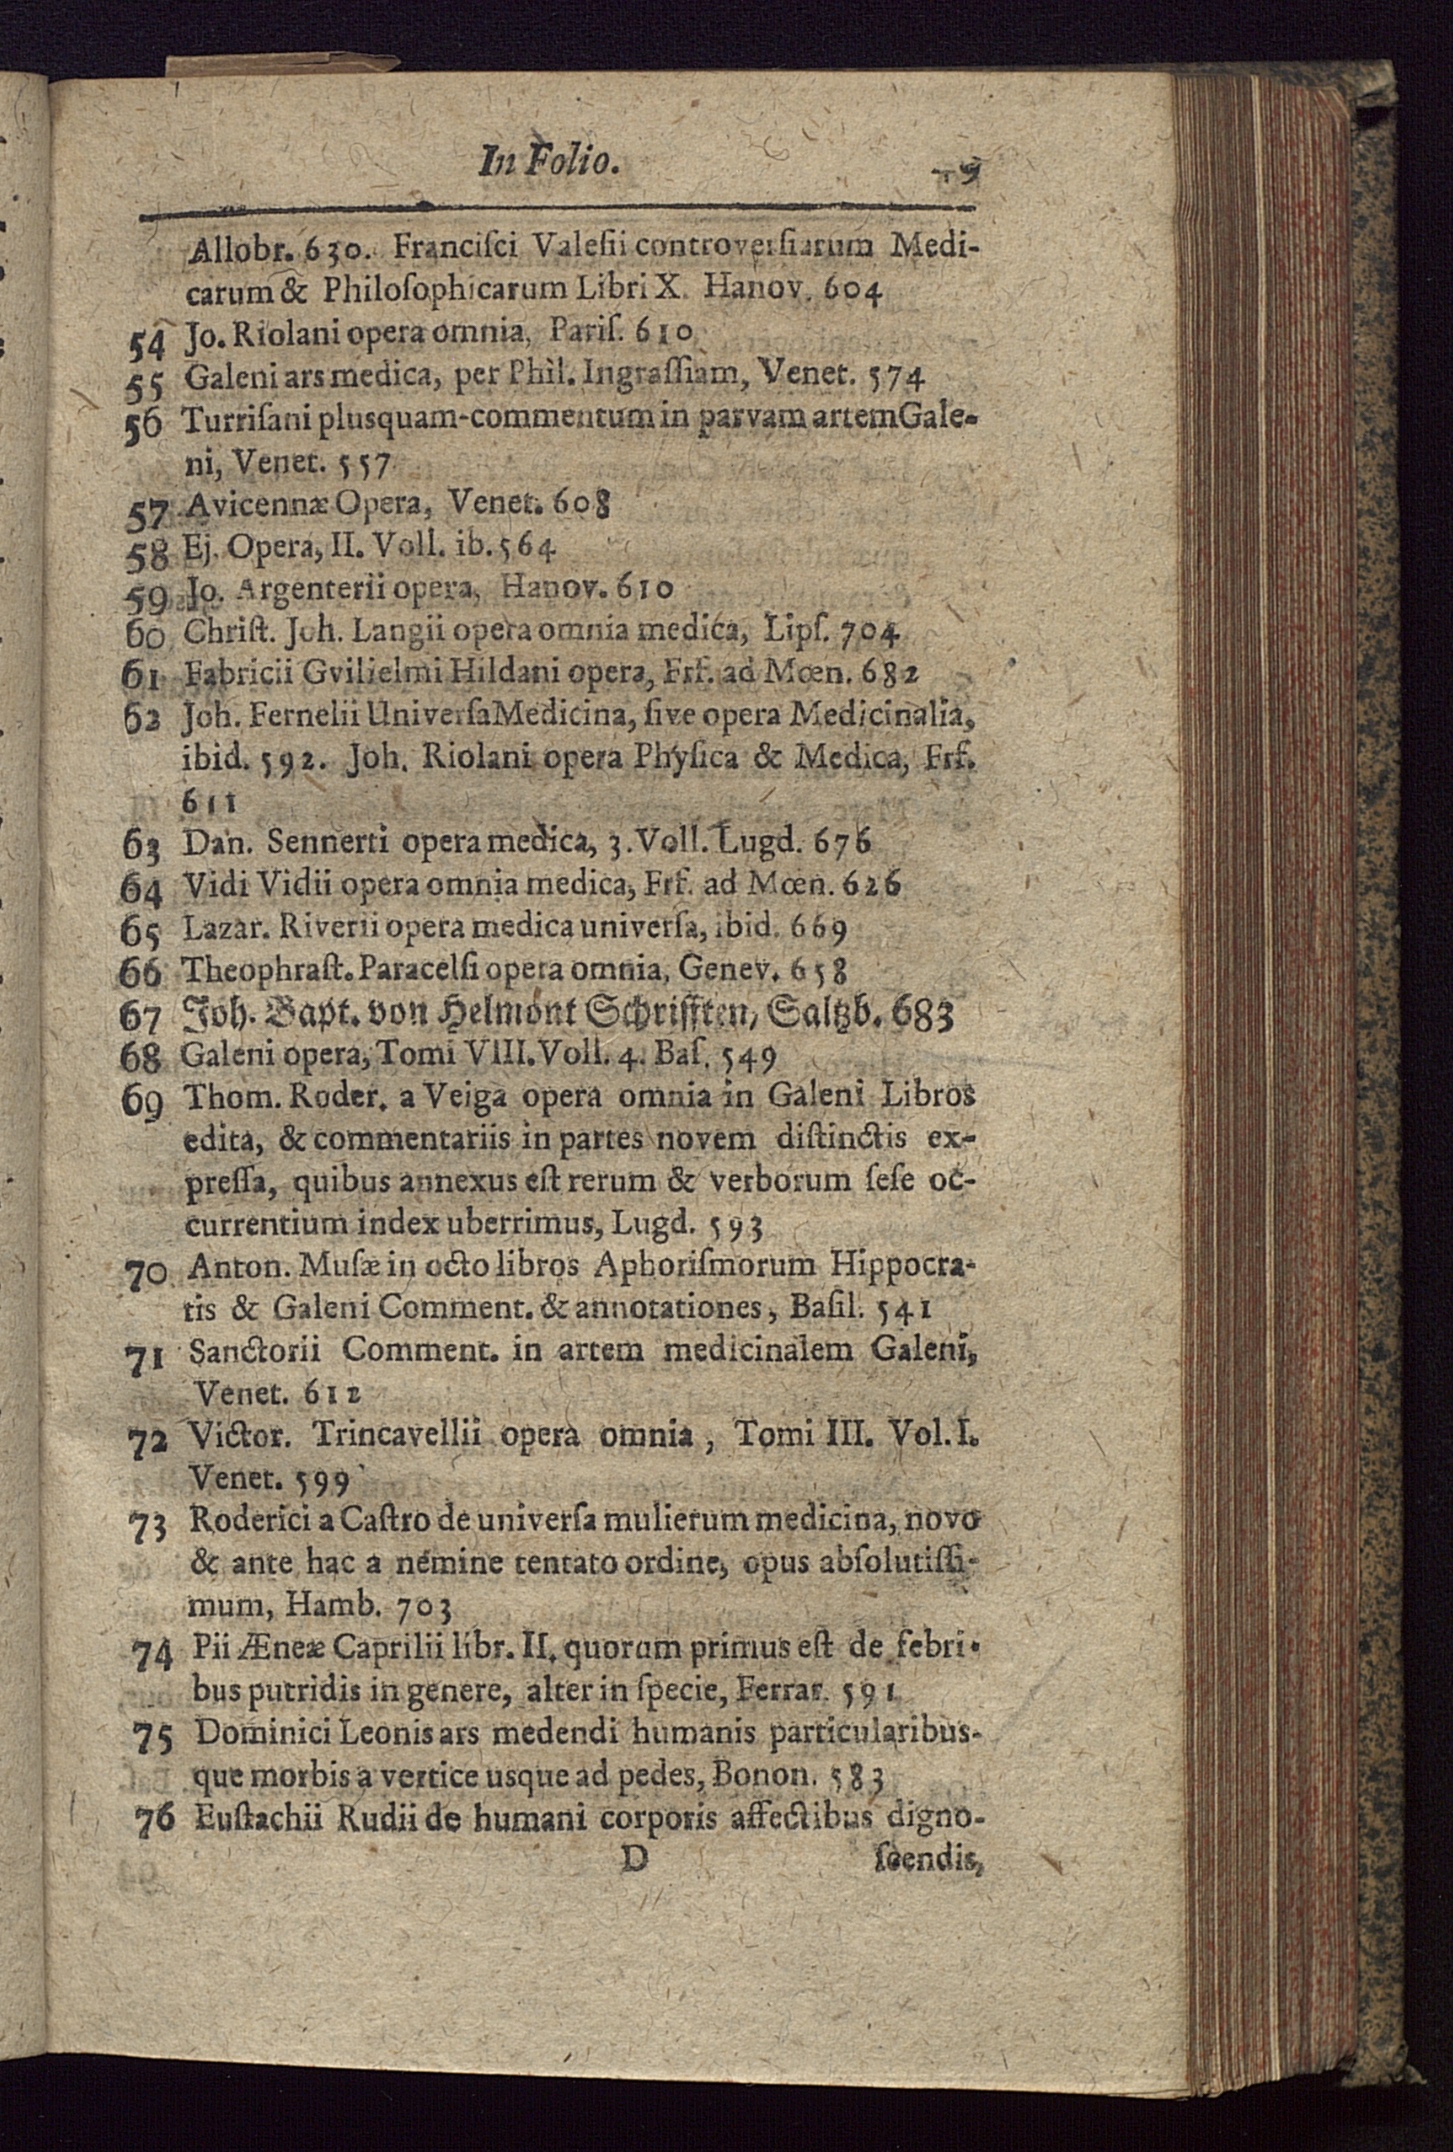 In Folio.
Allobr. 630. Franciſci Valeſii controverſiarum Medi-
carum & Philoſophicarum Libri X. Hanov. 604
54 Jo. Riolani opera omnia, Pariſ. 610
55 Galeni ars medica, per Phil. Ingraſſiam, Venet. 574
56 Turriſani plusquam-commentum in parvam artem Gale-
ni, Venet. 557
57 Avicennæ Opera, Venet. 608
58 Ej. Opera, II. Voll. ib. 564
59 Jo. Argenterii opera, Hanov. 610
60 Chriſt. Joh. Langii opera omnia medica, Lipſ. 704
61 Fabricii Gvilielmi Hildani opera, Frf. ad Mœn. 682
62 Joh. Fernelii Univerſa Medicina, ſive opera Medicinalia,
ibid. 592. Joh. Riolani opera Phyſica & Medica, Frf.
611
63 Dan. Sennerti opera medica, 3. Voll. Lugd. 676
64 Vidi Vidii opera omnia medica, Frf. ad Mœn. 626
65 Lazar. Riverii opera medica univerſa, ibid. 669
66 Theophraſt. Paracelſi opera omnia, Genev. 658
67 Joh. Bapt. von Helmont Schrifften, Saltzb. 683
68 Galeni opera, Tomi VIII. Voll. 4. Baſ. 549
69 Thom. Roder. a Veiga opera omnia in Galeni Libros
edita, & commentariis in partes novem diſtinctis ex-
preſſa, quibus annexus eſt rerum & verborum ſeſe oc-
currentium index uberrimus, Lugd. 593
70 Anton. Muſæ in octo libros Aphoriſmorum Hippocra-
tis & Galeni Comment. & annotationes, Baſil. 541
71 Sanctorii Comment. in artem medicinalem Galeni,
Venet. 612
72 Victor. Trincavellii opera omnia, Tomi III. Vol. I.
Venet. 599
73 Roderici a Caſtro de univerſa mulierum medicina, novo
& ante hac a nemine tentato ordine, opus abſolutiſſi-
mum, Hamb. 703
74 Pii Æneæ Caprilii libr. II. quorum primus eſt de febri-
bus putridis in genere, alter in ſpecie, Ferrar. 591
75 Dominici Leonis ars medendi humanis particularibus-
que morbis a vertice usque ad pedes, Bonon. 583
76 Euſtachii Rudii de humani corporis affectibus digno-
D ſcendis,